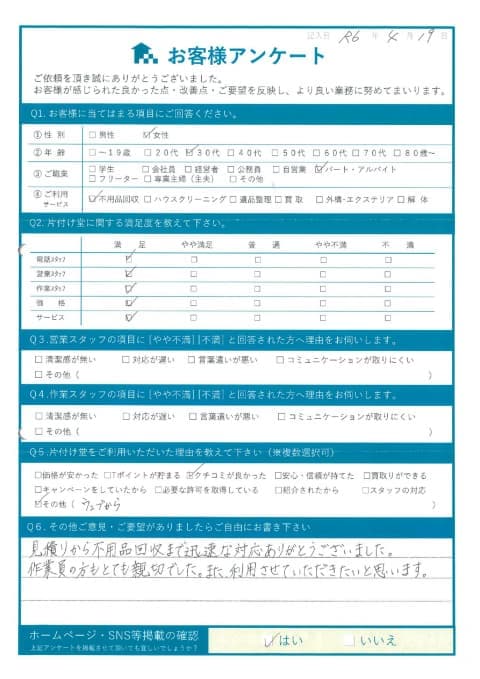 記入日 R6 年 4 月 19 日
お客様アンケート
ご依頼を頂き誠にありがとうございました。
お客様が感じられた良かった点・改善点・ご要望を反映し、より良い業務に努めてまいります。
Q1. お客様に当てはまる項目にご回答ください。
①性 別 □男性 ☑女性
②年 齢 □～19歳 □20代 ☑30代 □40代 □50代 □60代 □70代 □80歳～
③ご職業 □学生 □会社員 □経営者 □公務員 □自営業 ☑パート・アルバイト
□フリーター □専業主婦（主夫） □その他
④ご利用サービス ☑不用品回収 □ハウスクリーニング □遺品整理 □買取 □外構・エクステリア □解体
Q2. 片付け堂に関する満足度を教えて下さい。
満 足 やや満足 普 通 やや不満 不 満
電話スタッフ ☑ □ □ □ □
営業スタッフ ☑ □ □ □ □
作業スタッフ ☑ □ □ □ □
価 格 ☑ □ □ □ □
サービス ☑ □ □ □ □
Q3. 営業スタッフの項目に［やや不満］［不満］と回答された方へ理由をお伺いします。
□清潔感が無い □対応が遅い □言葉遣いが悪い □コミュニケーションが取りにくい
□その他（ ）
Q4. 作業スタッフの項目に［やや不満］［不満］と回答された方へ理由をお伺いします。
□清潔感が無い □対応が遅い □言葉遣いが悪い □コミュニケーションが取りにくい
□その他（ ）
Q5. 片付け堂をご利用いただいた理由を教えて下さい（※複数選択可）
□価格が安かった □Tポイントが貯まる ☑クチコミが良かった □安心・信頼が持てた □買取りができる
□キャンペーンをしていたから □必要な許可を取得している □紹介されたから □スタッフの対応
☑その他（ ウェブから
Q6. その他ご意見・ご要望がありましたらご自由にお書き下さい
見積りから不用品回収まで迅速な対応ありがとうございました。
作業員の方もとても親切でした。また、利用させていただきたいと思います。
ホームページ・SNS等掲載の確認 ☑はい □いいえ
上記アンケートを掲載させて頂いても宜しいでしょうか？